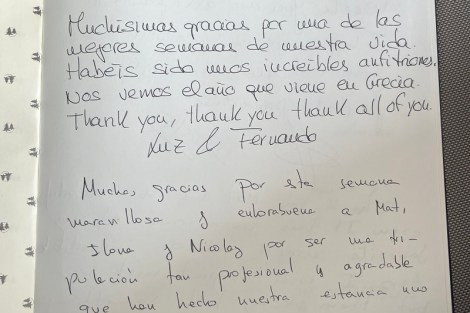 Muchísimas gracias por una de las
mejores semanas de nuestra vida.
Habéis sido unos increíbles anfitriones.
Nos vemos el año que viene en Grecia.
Thank you, thank you thank all of you.
Luz & Fernando
Muchas gracias por esta semana
maravillosa y enhorabuena a Mat,
Ilona y Nicolas por ser una tri-
pulación tan profesional y agradable
que han hecho nuestra estancia uno